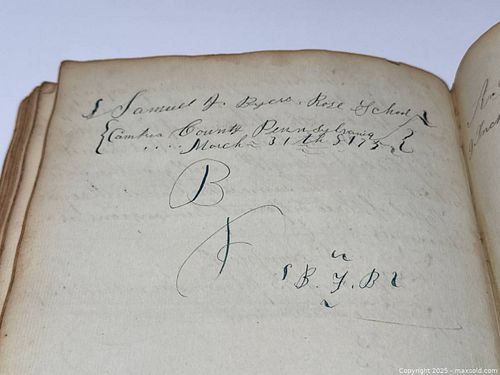 Samuel J. Byers. Rose School
Cambria County Pennsylvania
March 31th
B
F
B. F. B
Copyright 2025 - maxsold.com